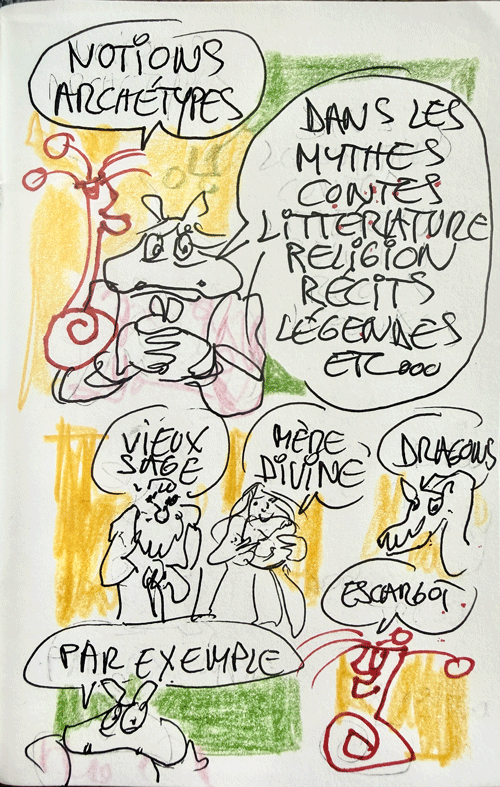 NOTIONS
ARCHÉTYPES
DANS LES
MYTHES
CONTES
LITTÉRATURE
RELIGION
RÉCITS
LÉGENDES
ETC...
VIEUX
SAGE
MÈRE
DIVINE
DRAGONS
ESCARGOT
PAR EXEMPLE